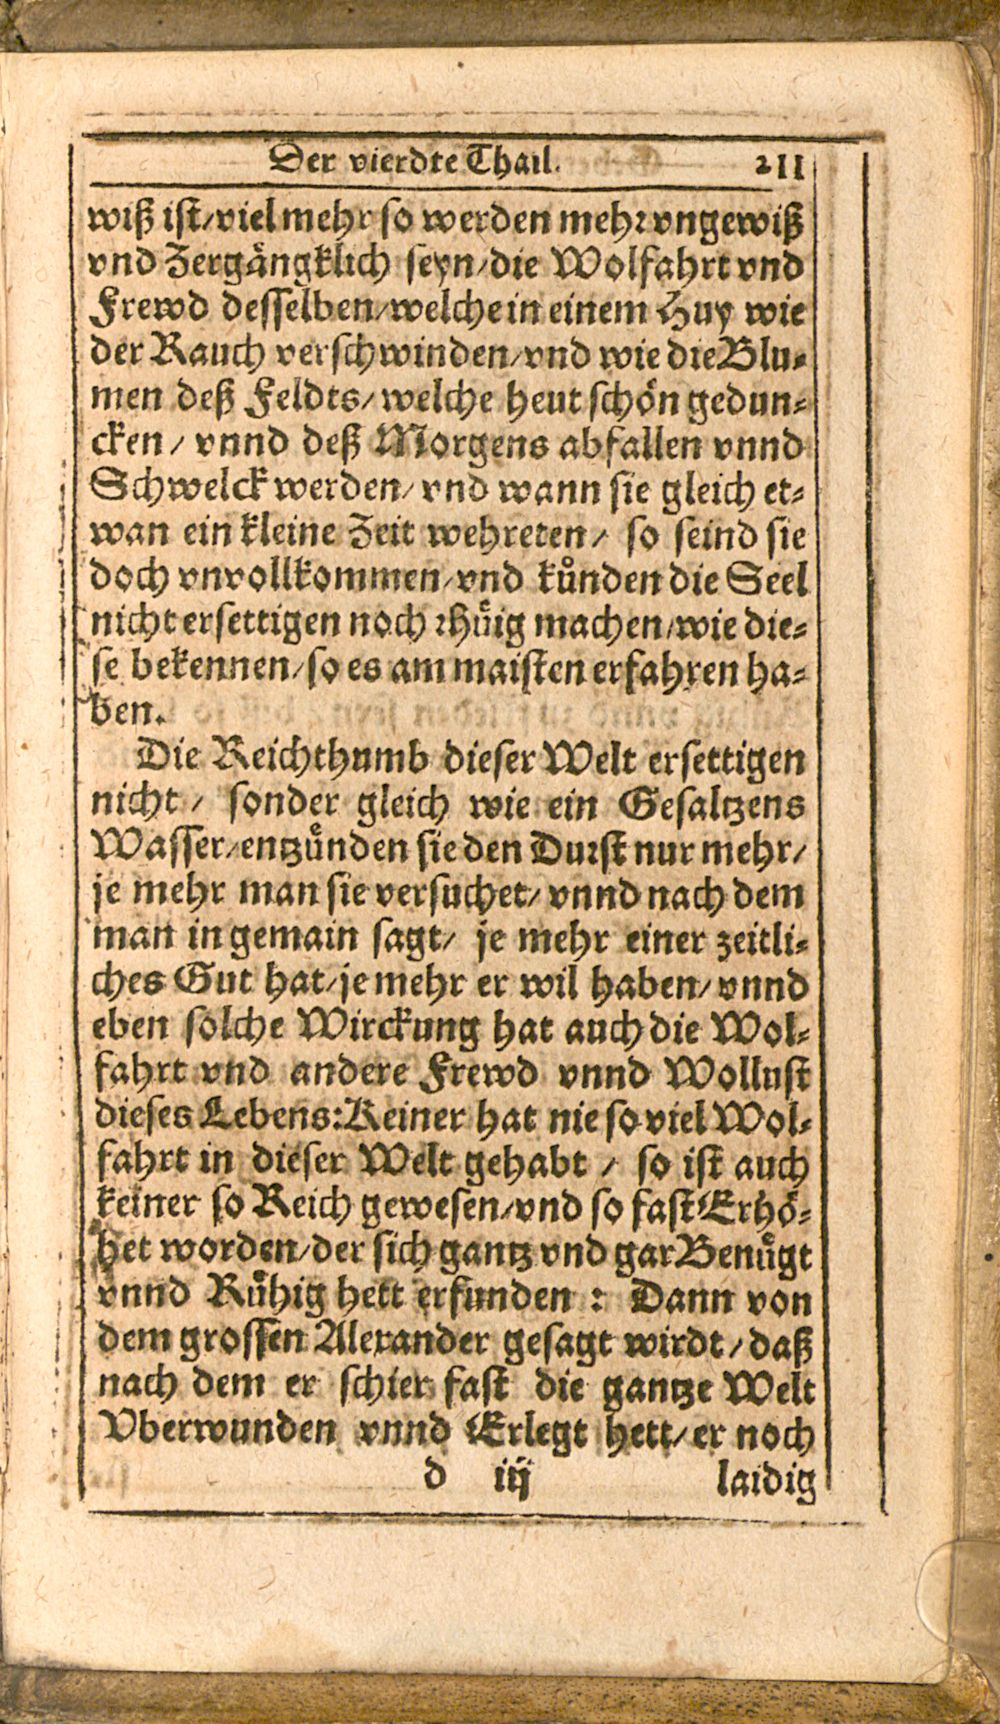 Der vierdte Thail. 211
wiß ist/viel mehr so werden mehr vngewiß
vnd Zergängklich seyn/die Wolfahrt vnd
Frewd desselben/welche in einem Huy wie
der Rauch verschwinden/vnd wie die Blu-
men deß Feldts/welche heut schön gedun-
cken/vnnd deß Morgens abfallen vnnd
Schwelck werden/vnd wann sie gleich et-
wan ein kleine Zeit wehreten/so seind sie
doch vnvollkommen/vnd kůnden die Seel
nicht ersettigen noch rhůig machen/wie die-
se bekennen/so es am maisten erfahren ha-
ben.
Die Reichthumb dieser Welt ersettigen
nicht/sonder gleich wie ein Gesaltzens
Wasser/entzůnden sie den Durst nur mehr/
je mehr man sie versuchet/vnnd nach dem
man in gemain sagt/je mehr einer zeitli-
ches Gut hat/je mehr er wil haben/vnnd
eben solche Wirckung hat auch die Wol-
fahrt vnd andere Frewd vnnd Wollust
dieses Lebens:Keiner hat nie so viel Wol-
fahrt in dieser Welt gehabt/so ist auch
keiner so Reich gewesen/vnd so fast Erhö-
het worden/der sich gantz vnd gar Benůgt
vnnd Růhig hett erfunden: Dann von
dem grossen Alexander gesagt wirdt/daß
nach dem er schier fast die gantze Welt
Vberwunden vnnd Erlegt hett/er noch
d iij laidig